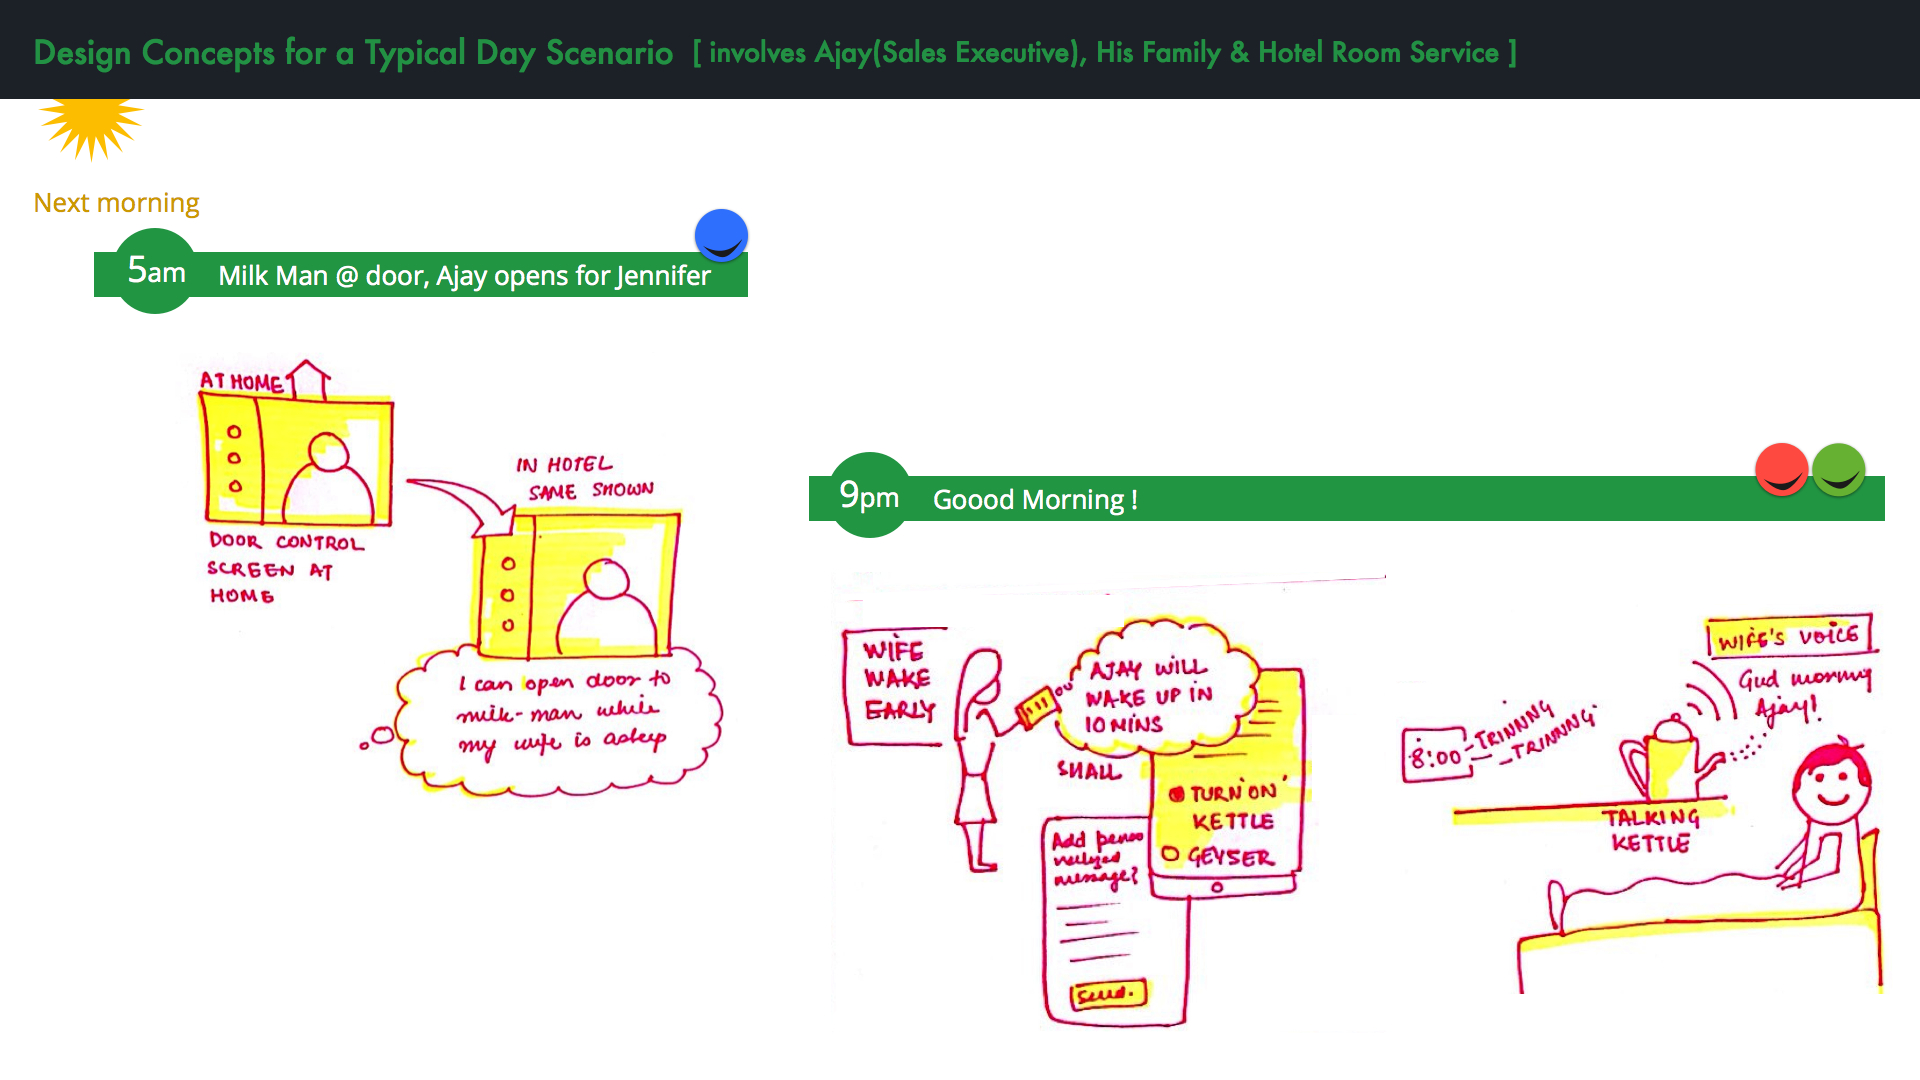 Design Concepts for a Typical Day Scenario [ involves Ajay(Sales Executive), His Family & Hotel Room Service ]
Next morning
5am Milk Man @ door, Ajay opens for Jennifer
AT HOME
DOOR CONTROL
SCREEN AT
HOME
IN HOTEL
SAME SHOWN
I can open door to
milk-man while
my wife is asleep
9pm Goood Morning !
WIFE
WAKE
EARLY
AJAY WILL
WAKE UP IN
10 MINS
SHALL
TURN ON
KETTLE
GEYSER
Add perso
nalized
message?
Send.
8:00
TRINNNG
TRINNNG
WIFE'S VOICE
Gud morning
Ajay!
TALKING
KETTLE